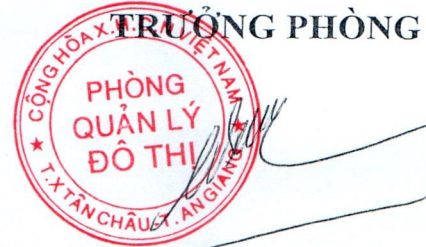 TRƯỞNG PHÒNG
CỘNG HÒA X.H.C.N VIỆT NAM
PHÒNG
QUẢN LÝ
ĐÔ THỊ
T.X TÂN CHÂU T. AN GIANG